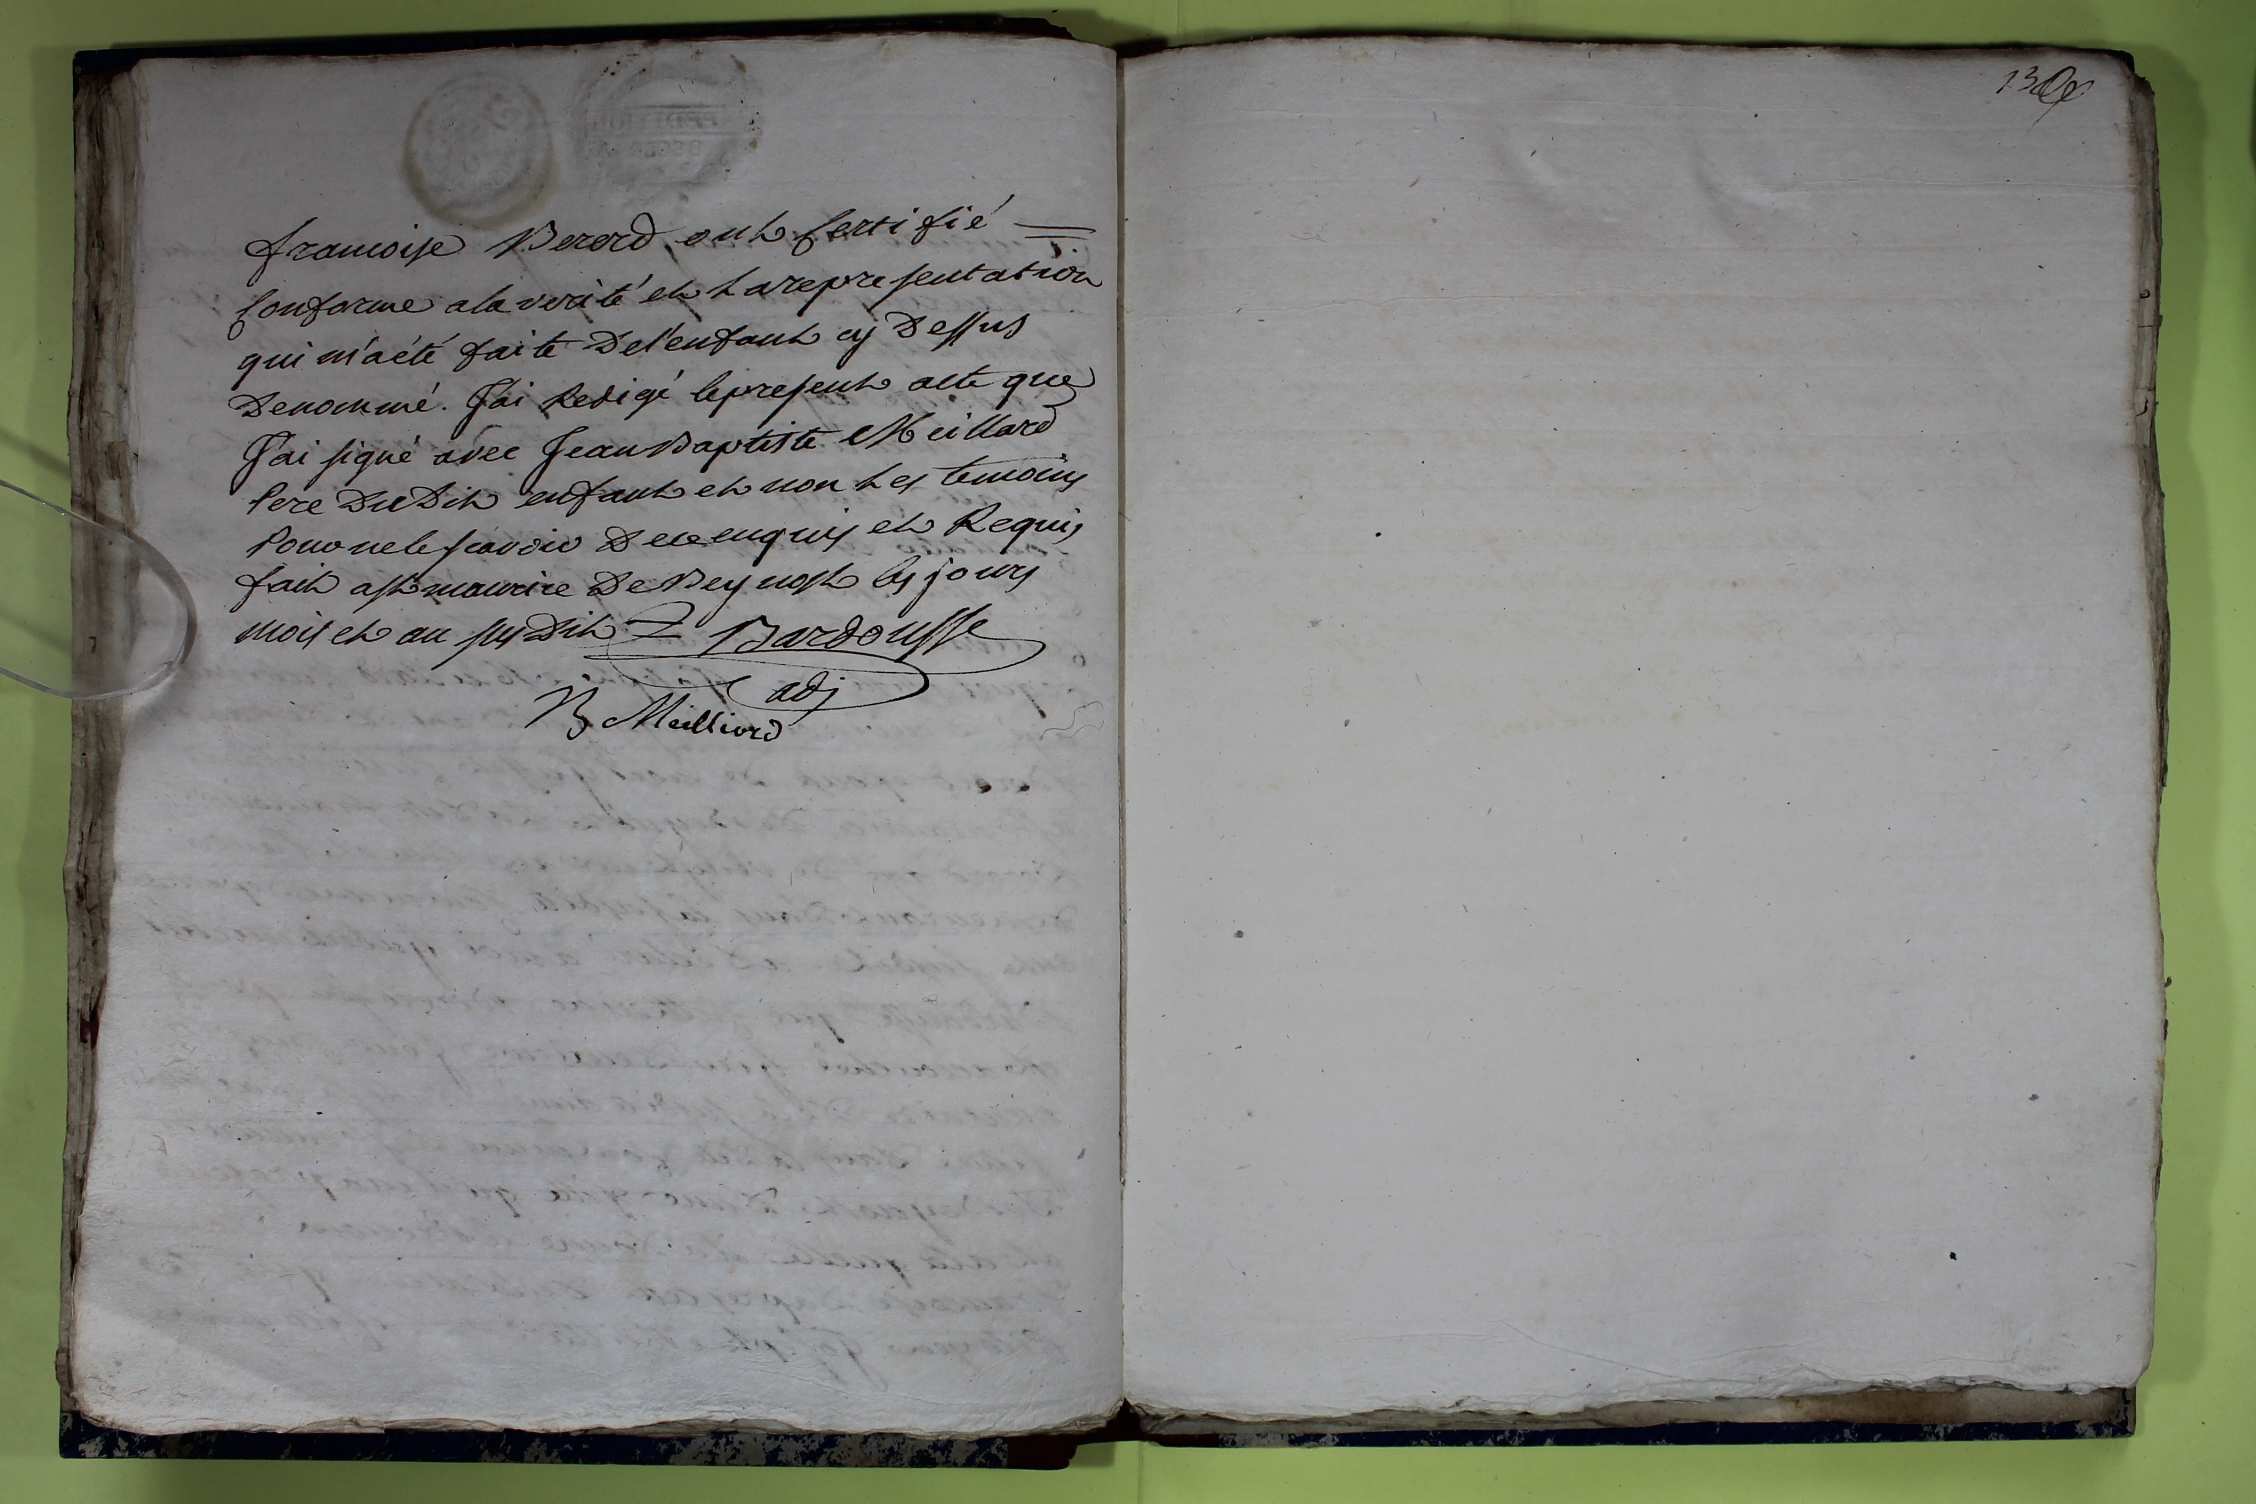 francoise Bererd, ont Certifié
Conforme a la verité et La representation
qui m'a été faite De l'enfant cy Dessus
Denommé. J'ai Redigé le present acte que
J'ai signé avec Jean Baptiste Meillard
Pere Du Dit enfant et non Les temoins
Pour ne le sçavoir De ce enquis et Requis
fait a st maurice De Beynost les jours
mois et an sus Dit Bardousse
adj
B Meilliard
13